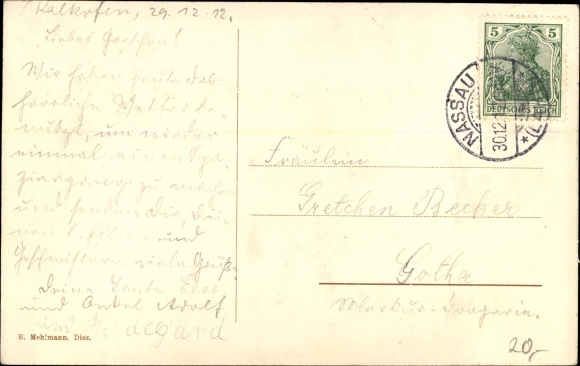 Kalkofen, 29.12.12.
Liebes Gretchen!
Wir haben heute das
herrliche Wetter be-
nutzt, um wieder
einmal einen Spa-
ziergang zu machen
und senden Dir, Dei-
nen l. Eltern und
Geschwistern viele Grüße
Deine Tante Else
und Onkel Adolf
und Hildegard
B. Mehlmann, Diez.
5 5
DEUTSCHES REICH
NASSAU
30.12.1
Fräulein
Gretchen Becker
Gotha
Merkur-Drogerie.
20,-